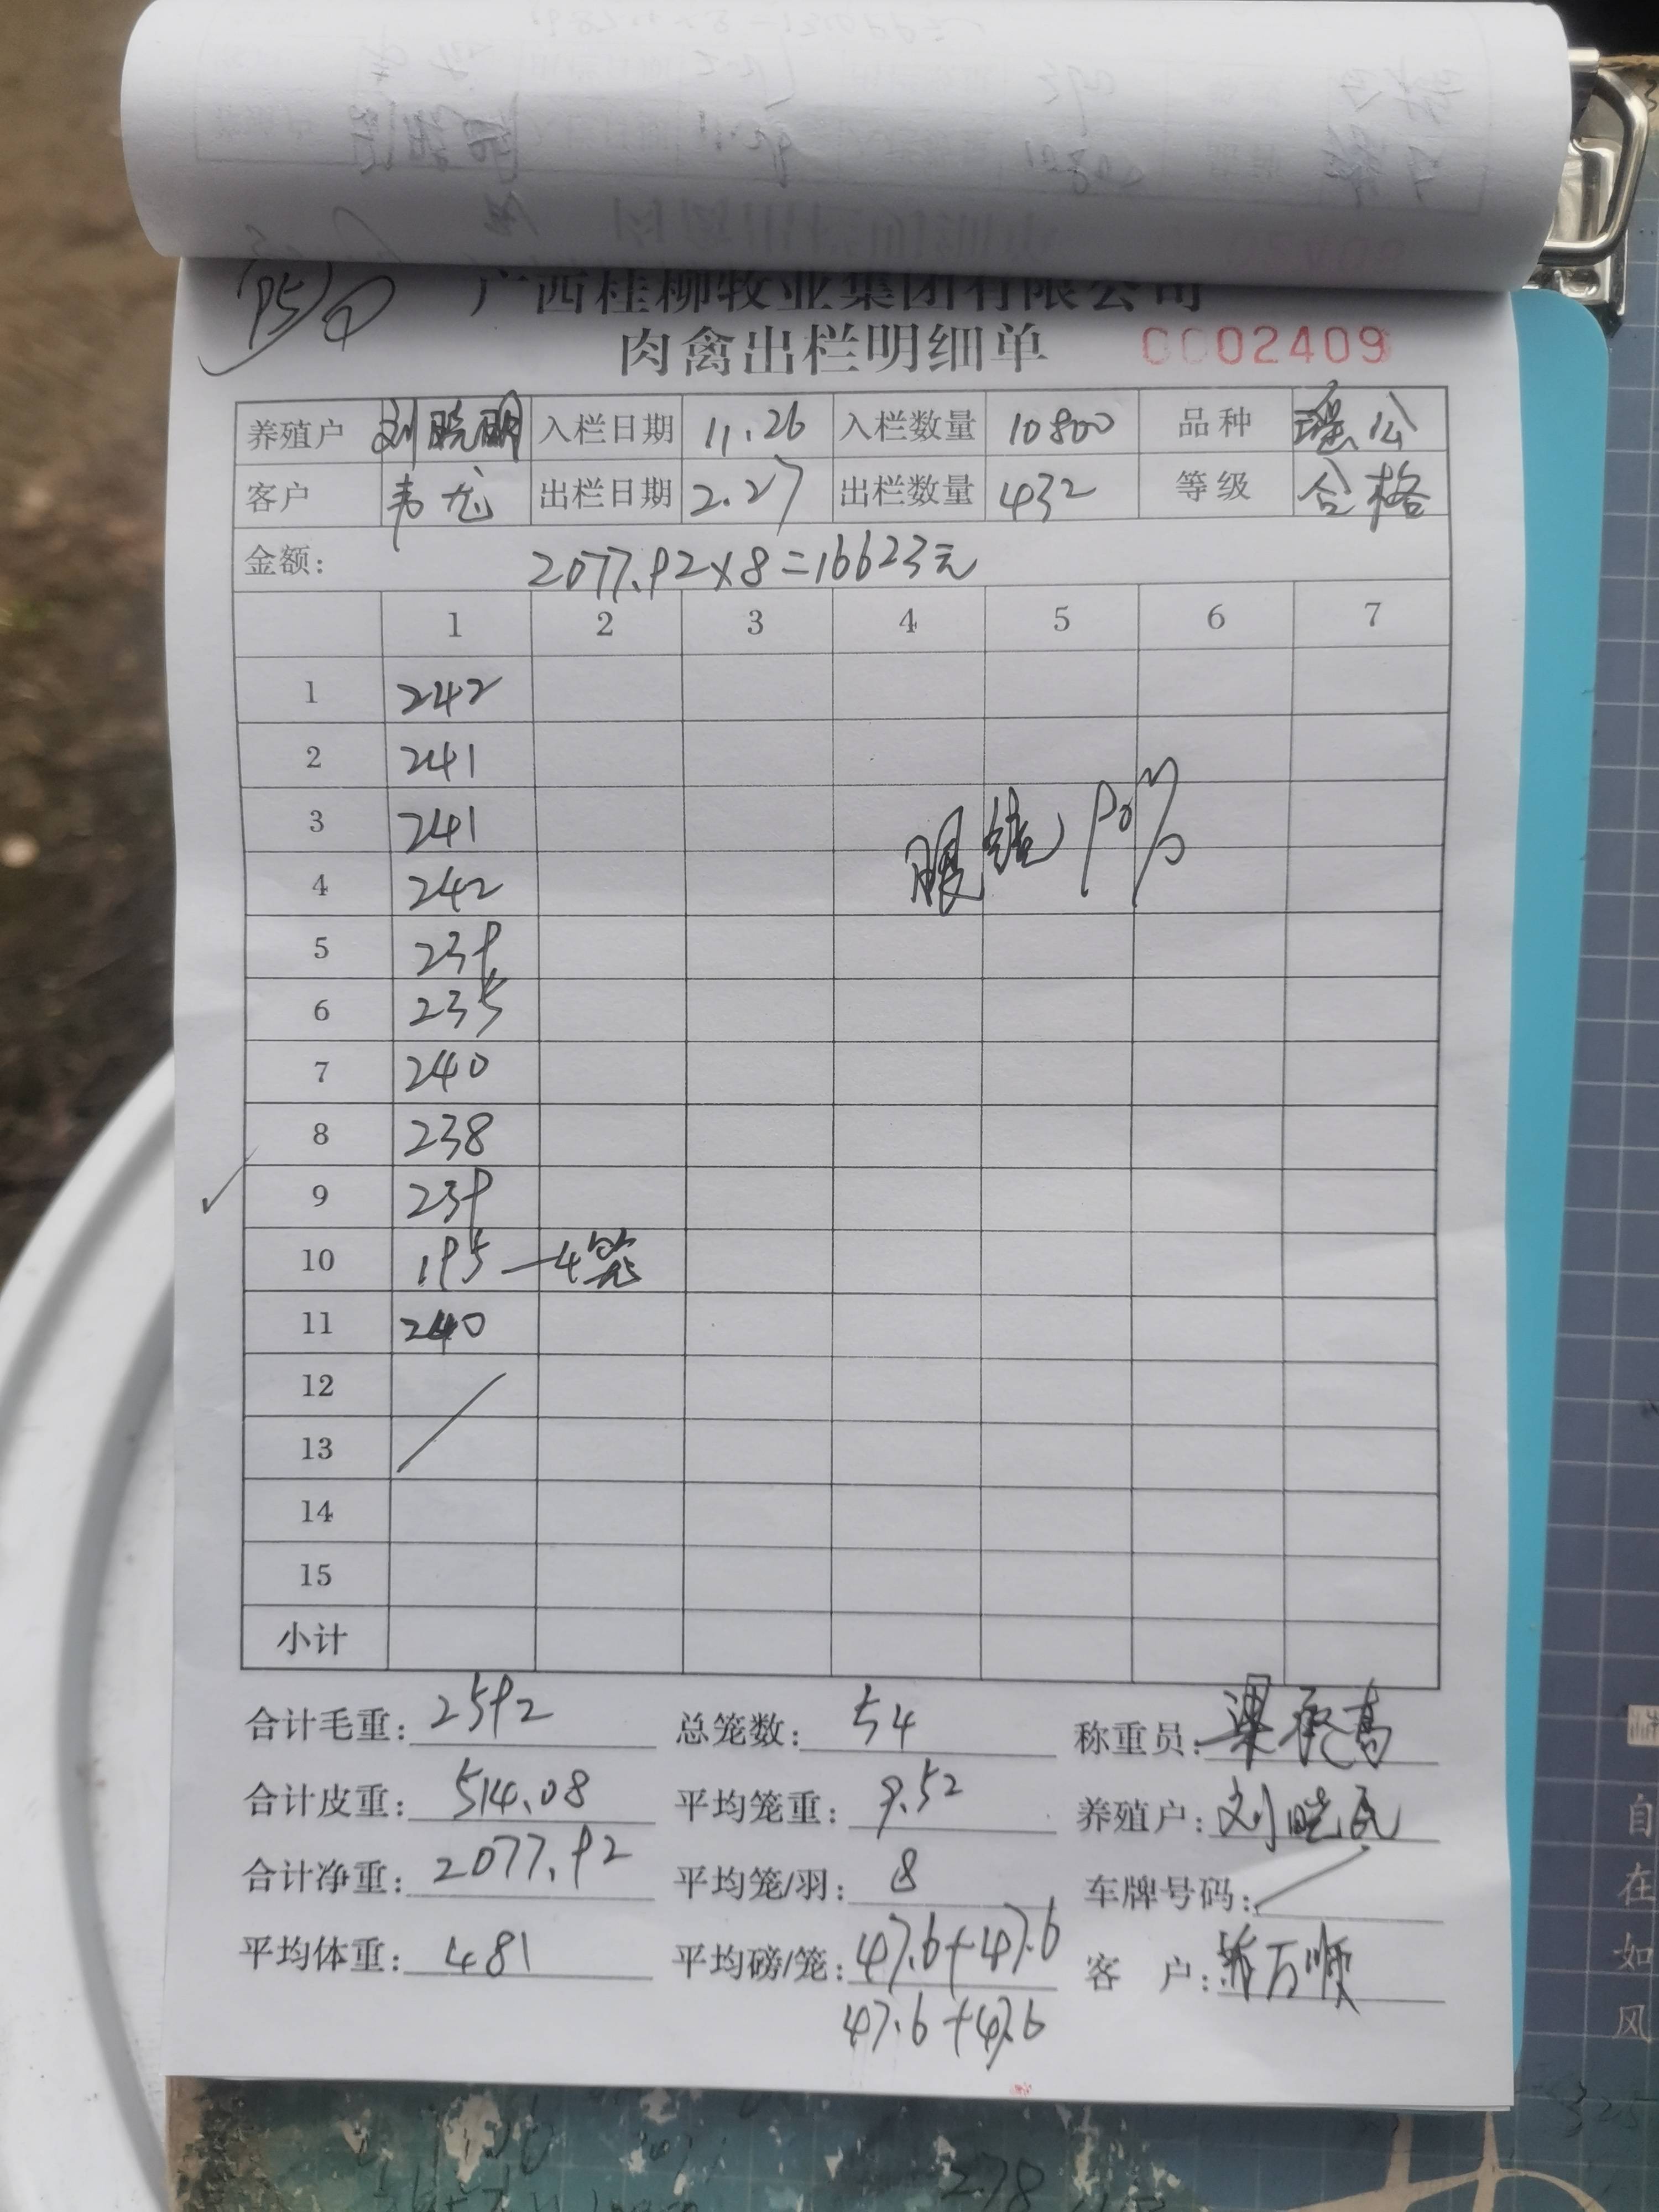 广西桂柳牧业集团有限公司
肉禽出栏明细单 0002409
养殖户 刘晓明 入栏日期 11.26 入栏数量 10800 品种 瑶公
客户 韦龙 出栏日期 2.27 出栏数量 432 等级 合格
金额: 2077.92×8=16623元
1 2 3 4 5 6 7
1 242
2 241
3 241
4 242
5 239
6 235
7 240
8 238
9 239
10 195—4笼
11 240
12
13
14
15
小计
合计毛重: 2592 总笼数: 54 称重员: 梁承高
合计皮重: 514.08 平均笼重: 9.52 养殖户: 刘晓
合计净重: 2077.92 平均笼/羽: 8 车牌号码:
平均体重: 481 平均磅/笼: 47.6+47.6 客 户: 万顺
47.6+47.6
自
在
如
风